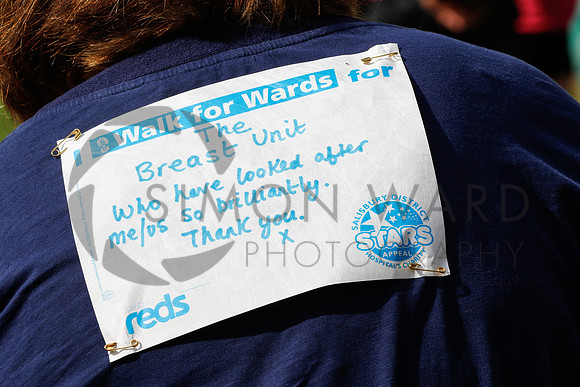 I Walk for Wards for
The
Breast Unit
Who have looked after
me/us so brilliantly.
Thank you.
x
SALISBURY DISTRICT
STARS
APPEAL
HOSPITAL'S CHARITY
reds
SIMON WARD
PHOTOGRAPHY